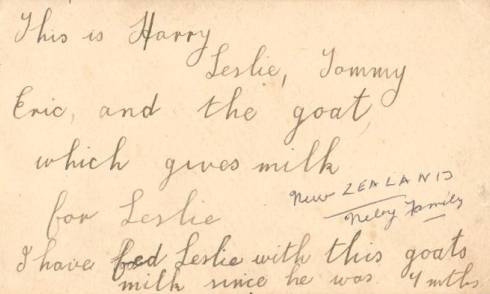 This is Harry
Leslie, Tommy
Eric, and the goat,
which gives milk
for Leslie
New ZEALAND
Family
I have fed Leslie with this goats
milk since he was 4 mths